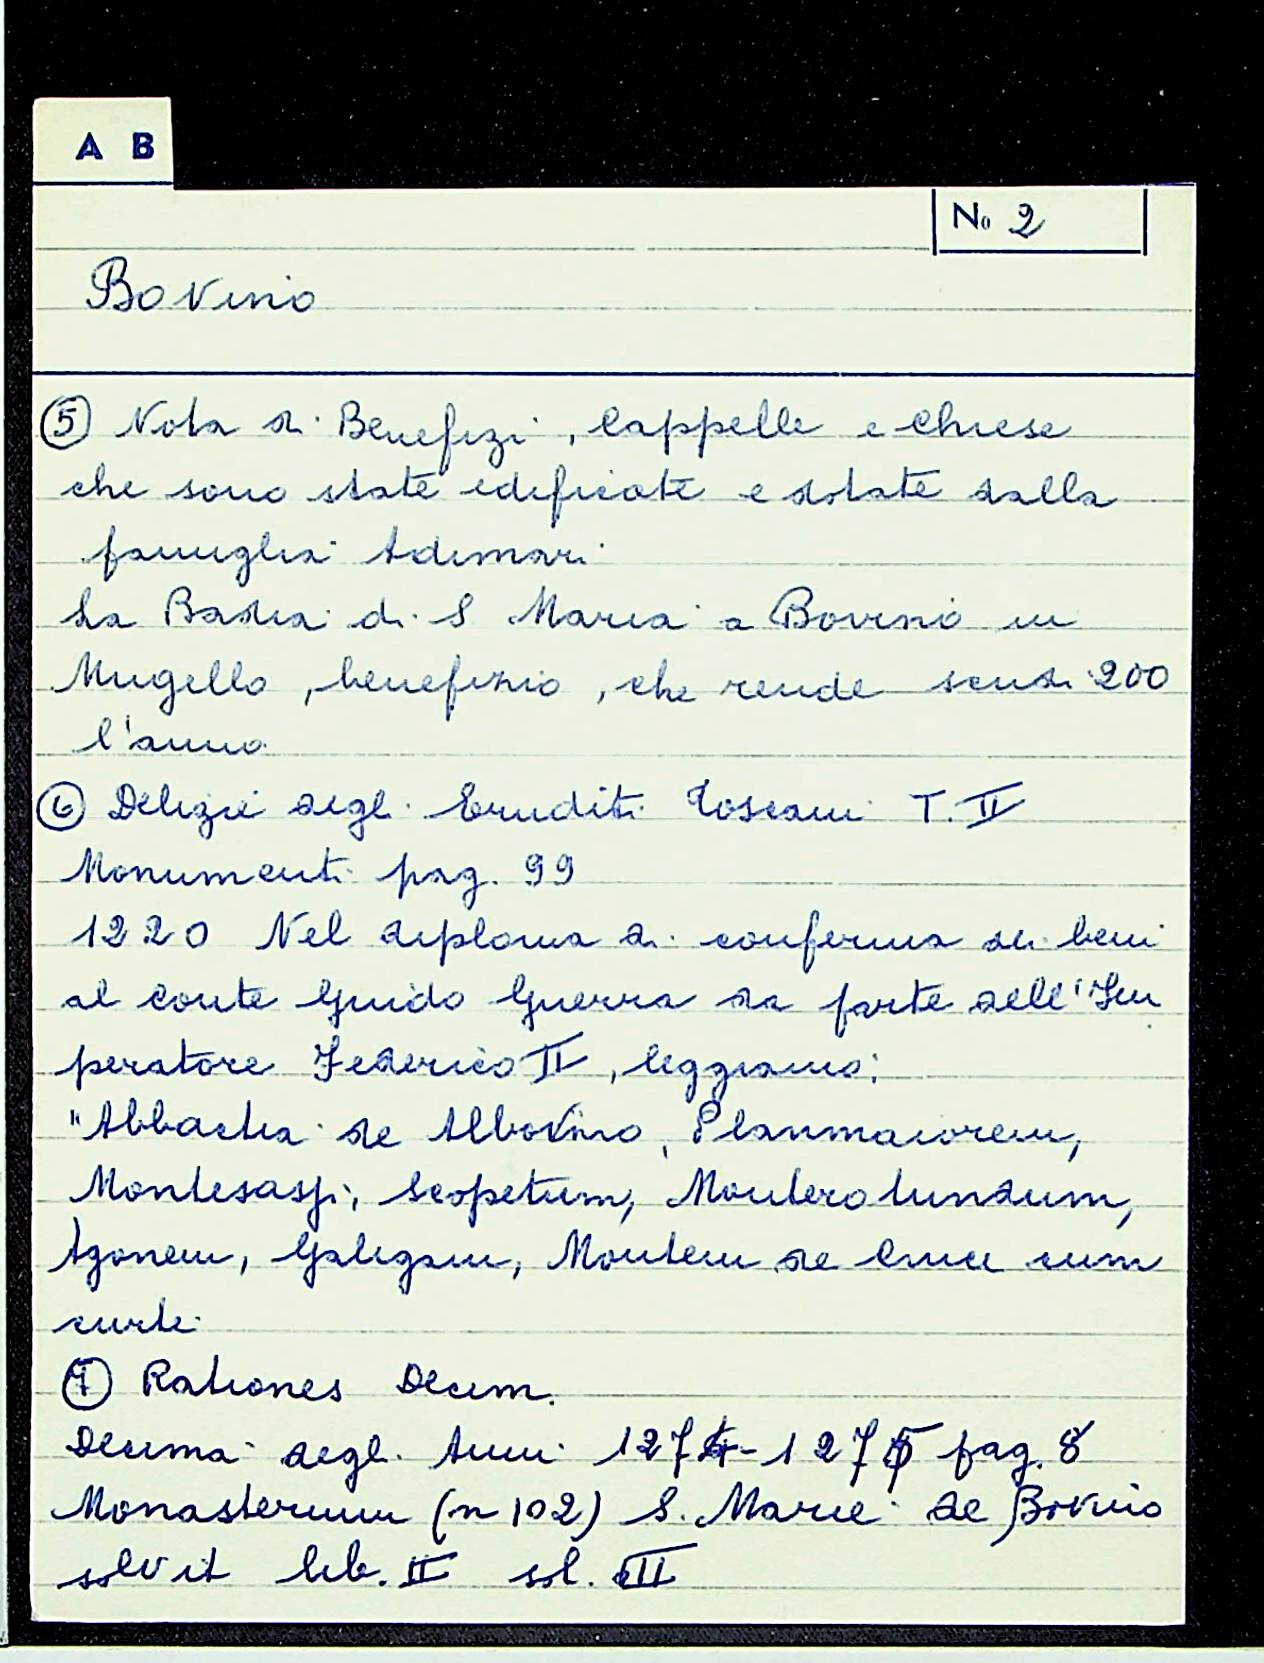 A B
No 2
Bovino
⑤ Nota di Benefizi, Cappelle e Chiese
che sono state edificate e dotate dalla
famiglia Adimari
La Badia di S Maria a Bovino in
Mugello, benefizio, che rende scudi 200
l'anno
⑥ Delizie degli Eruditi Toscani T. II
Monumenti pag. 99
1220 Nel diploma di conferma dei beni
al conte Guido Guerra da parte dell'Im
peratore Federico II, leggiamo:
"Abbatia de Albovino, Planmaiorem,
Montesassi, Scopetum, Monterotundum,
Agonem, Galigam, Montem de Cruci cum
curte
⑦ Rationes Decim.
Decima degli Anni 1274-1275 pag. 8
Monasterium (n 102) S. Marie de Bovino
solvit lib. II sol. III